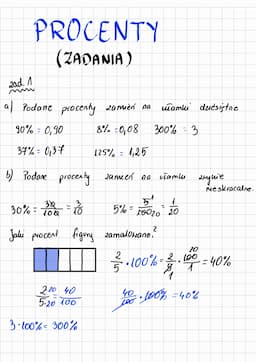 PROCENTY
(ZADANIA)
zad. 1
a) Podane procenty zamień na ułamki dziesiętne
90% = 0,90 8% = 0,08 300% = 3
37% = 0,37 125% = 1,25
b) Podane procenty zamień na ułamki zwykłe
nieskracalne.
30% = 30/100 = 3/10 5% = 5/100 = 1/20
Jaki procent figury zamalowano?
2/5 · 100% = 2/5 · 100/1 = 40%
2·20/5·20 = 40/100 40/100 · 100% = 40%
3·100% = 300%